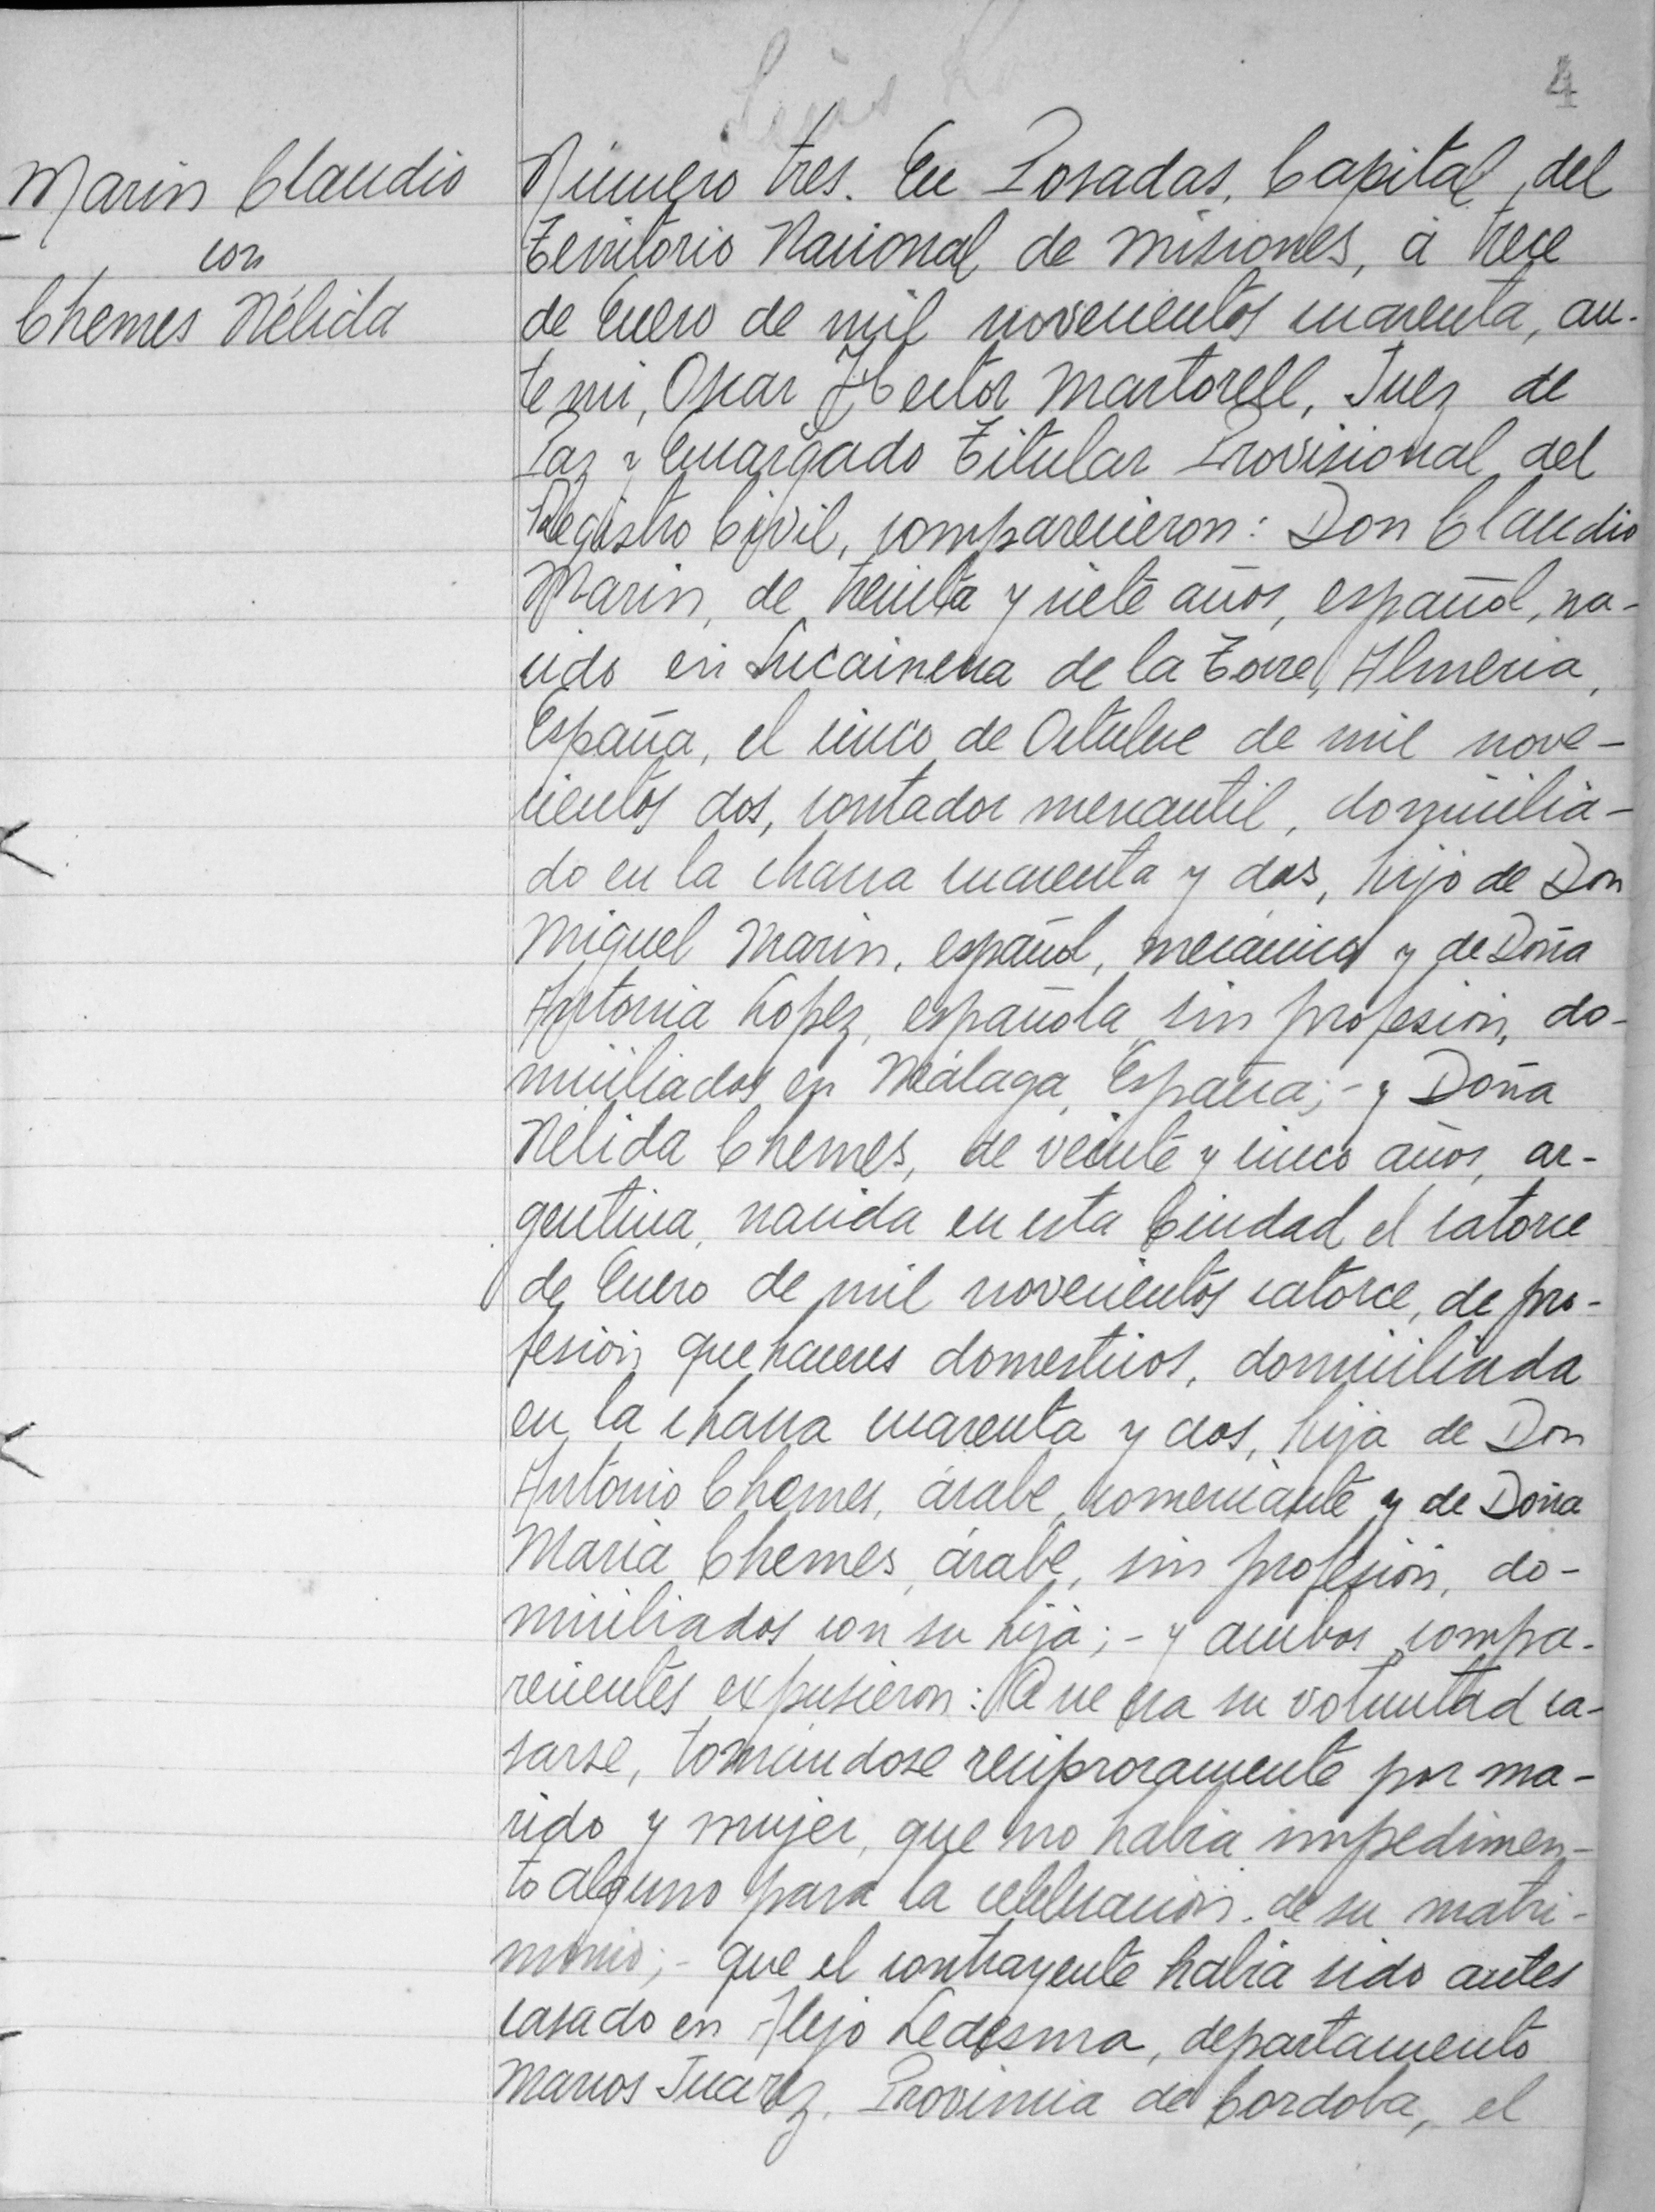 4
Marin Claudio
con
Chemes Nélida
Número tres. En Posadas, Capital del
Territorio Nacional de Misiones, á trece
de Enero de mil novecientos cuarenta, an-
te mi, Oscar Hector Martorell, Juez de
Paz y Encargado Titular Provisional del
Registro Civil, comparecieron: Don Claudio
Marin, de treinta y siete años, español, na-
cido en Lucainena de la Torre, Almeria,
España, el cinco de Octubre de mil nove-
cientos dos, contador mercantil, domicilia-
do en la chacra cuarenta y dos, hijo de Don
Miguel Marin, español, mecánico y de Doña
Antonia Lopez, española, sin profesión, do-
miciliados en Málaga, España;- y Doña
Nélida Chemes, de veinte y cinco años, ar-
gentina, nacida en esta Ciudad el catorce
de Enero de mil novecientos catorce, de pro-
fesión quehaceres domesticos, domiciliada
en la chacra cuarenta y dos, hija de Don
Antonio Chemes, árabe, comerciante y de Doña
Maria Chemes, árabe, sin profesión, do-
miciliados con su hija;- y ambos compa-
recientes expusieron: Que era su voluntad ca-
sarse, tomándose reciprocamente por ma-
rido y mujer, que no habia impedimen-
to alguno para la celebración de su matri-
monio;- que el contrayente habia sido antes
casado en Alejo Ledesma, departamento
Marcos Juarez, Provincia de Cordoba, el